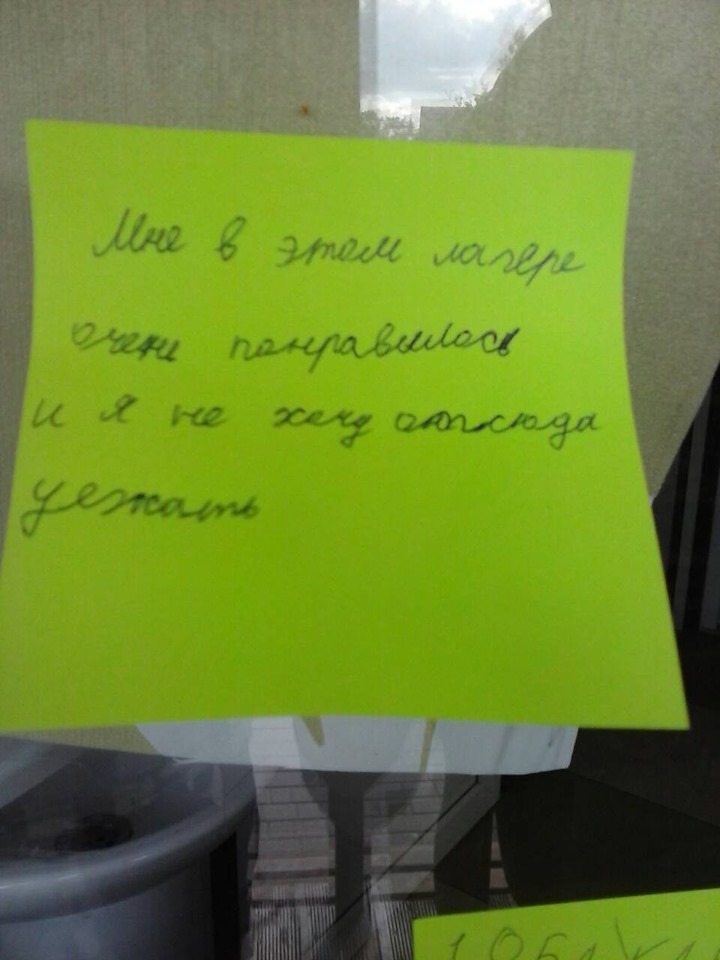 Мне в этом лагере
очень понравилось
и я не хочу отсюда
уезжать